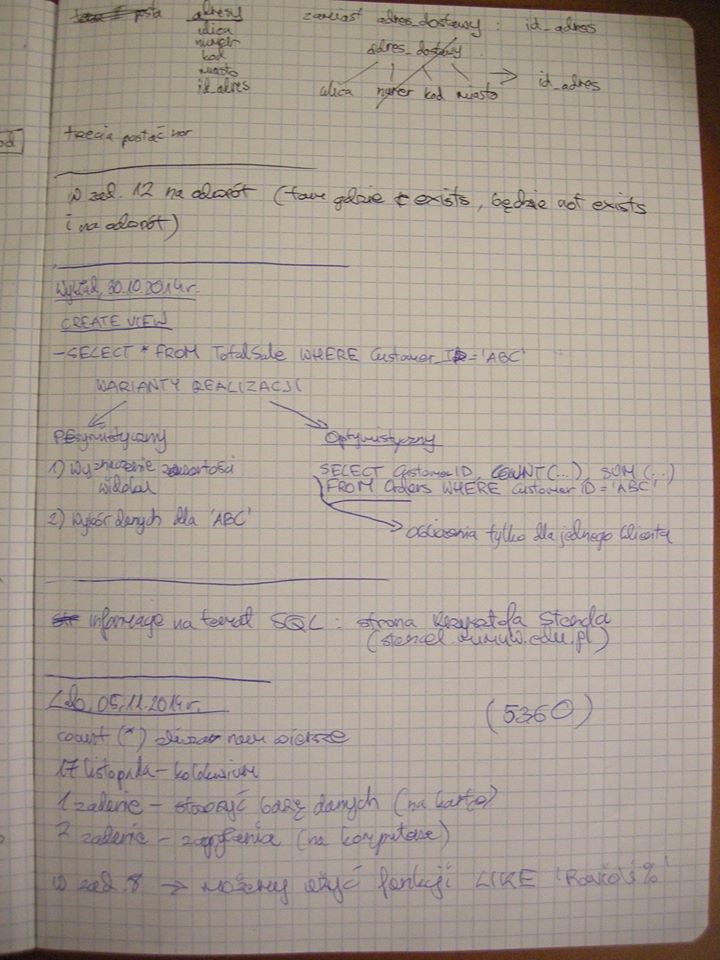 adresy
ulica
numer
kod
miasto
id_adres
zamiast adres_dostawy : id_adres
adres_dostawy
ulica numer kod miasto
id_adres
trzecia postać nor
w zad. 12 na odwrót (tam gdzie exists, będzie not exists
i na odwrót)
Wykład, 30.10.2014r.
CREATE VIEW
- SELECT * FROM TotalSale WHERE Customer ID = 'ABC'
WARIANTY REALIZACJI
Pesymistyczny
1) Wyznaczenie zawartości
widoku
2) Wybór danych dla 'ABC'
Optymistyczny
SELECT CustomerID, COUNT(...), SUM(...)
FROM Orders WHERE Customer ID = 'ABC'
Obliczenia tylko dla jednego klienta
informacje na temat SQL : strona Krzysztofa Stencla
(stencel.mimuw.edu.pl)
Lab, 05.11.2014r.
(5360)
count (*) nam wiersze
17 listopada - kolokwium
1 zadanie - stworzyć bazę danych (na kartce)
2 zadanie - zapytania (na komputerze)
w zad. 8 → możemy użyć funkcji LIKE